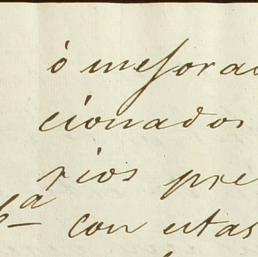 ò mejorad
cionados
rios pre
6ª con estas